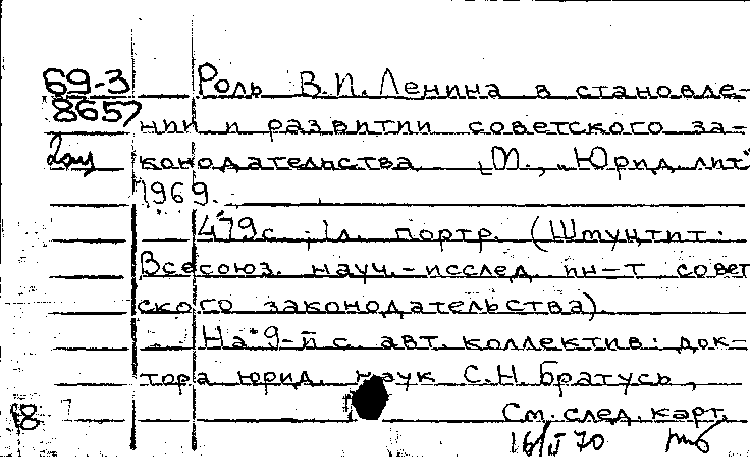 69-3 Роль В.И. Ленина в становле-
8657
нии и развитии советского за-
2 экз конодательства. [М., „Юрид. лит."
1969.
479 с.; 1 л. портр. (Шмунтит.:
Всесоюз. науч.-исслед. ин-т совет
ского законодательства).
На 9-й с. авт. коллектив: док-
тора юрид. наук С.Н. Братусь,
18 См. след. карт.
16/II 70